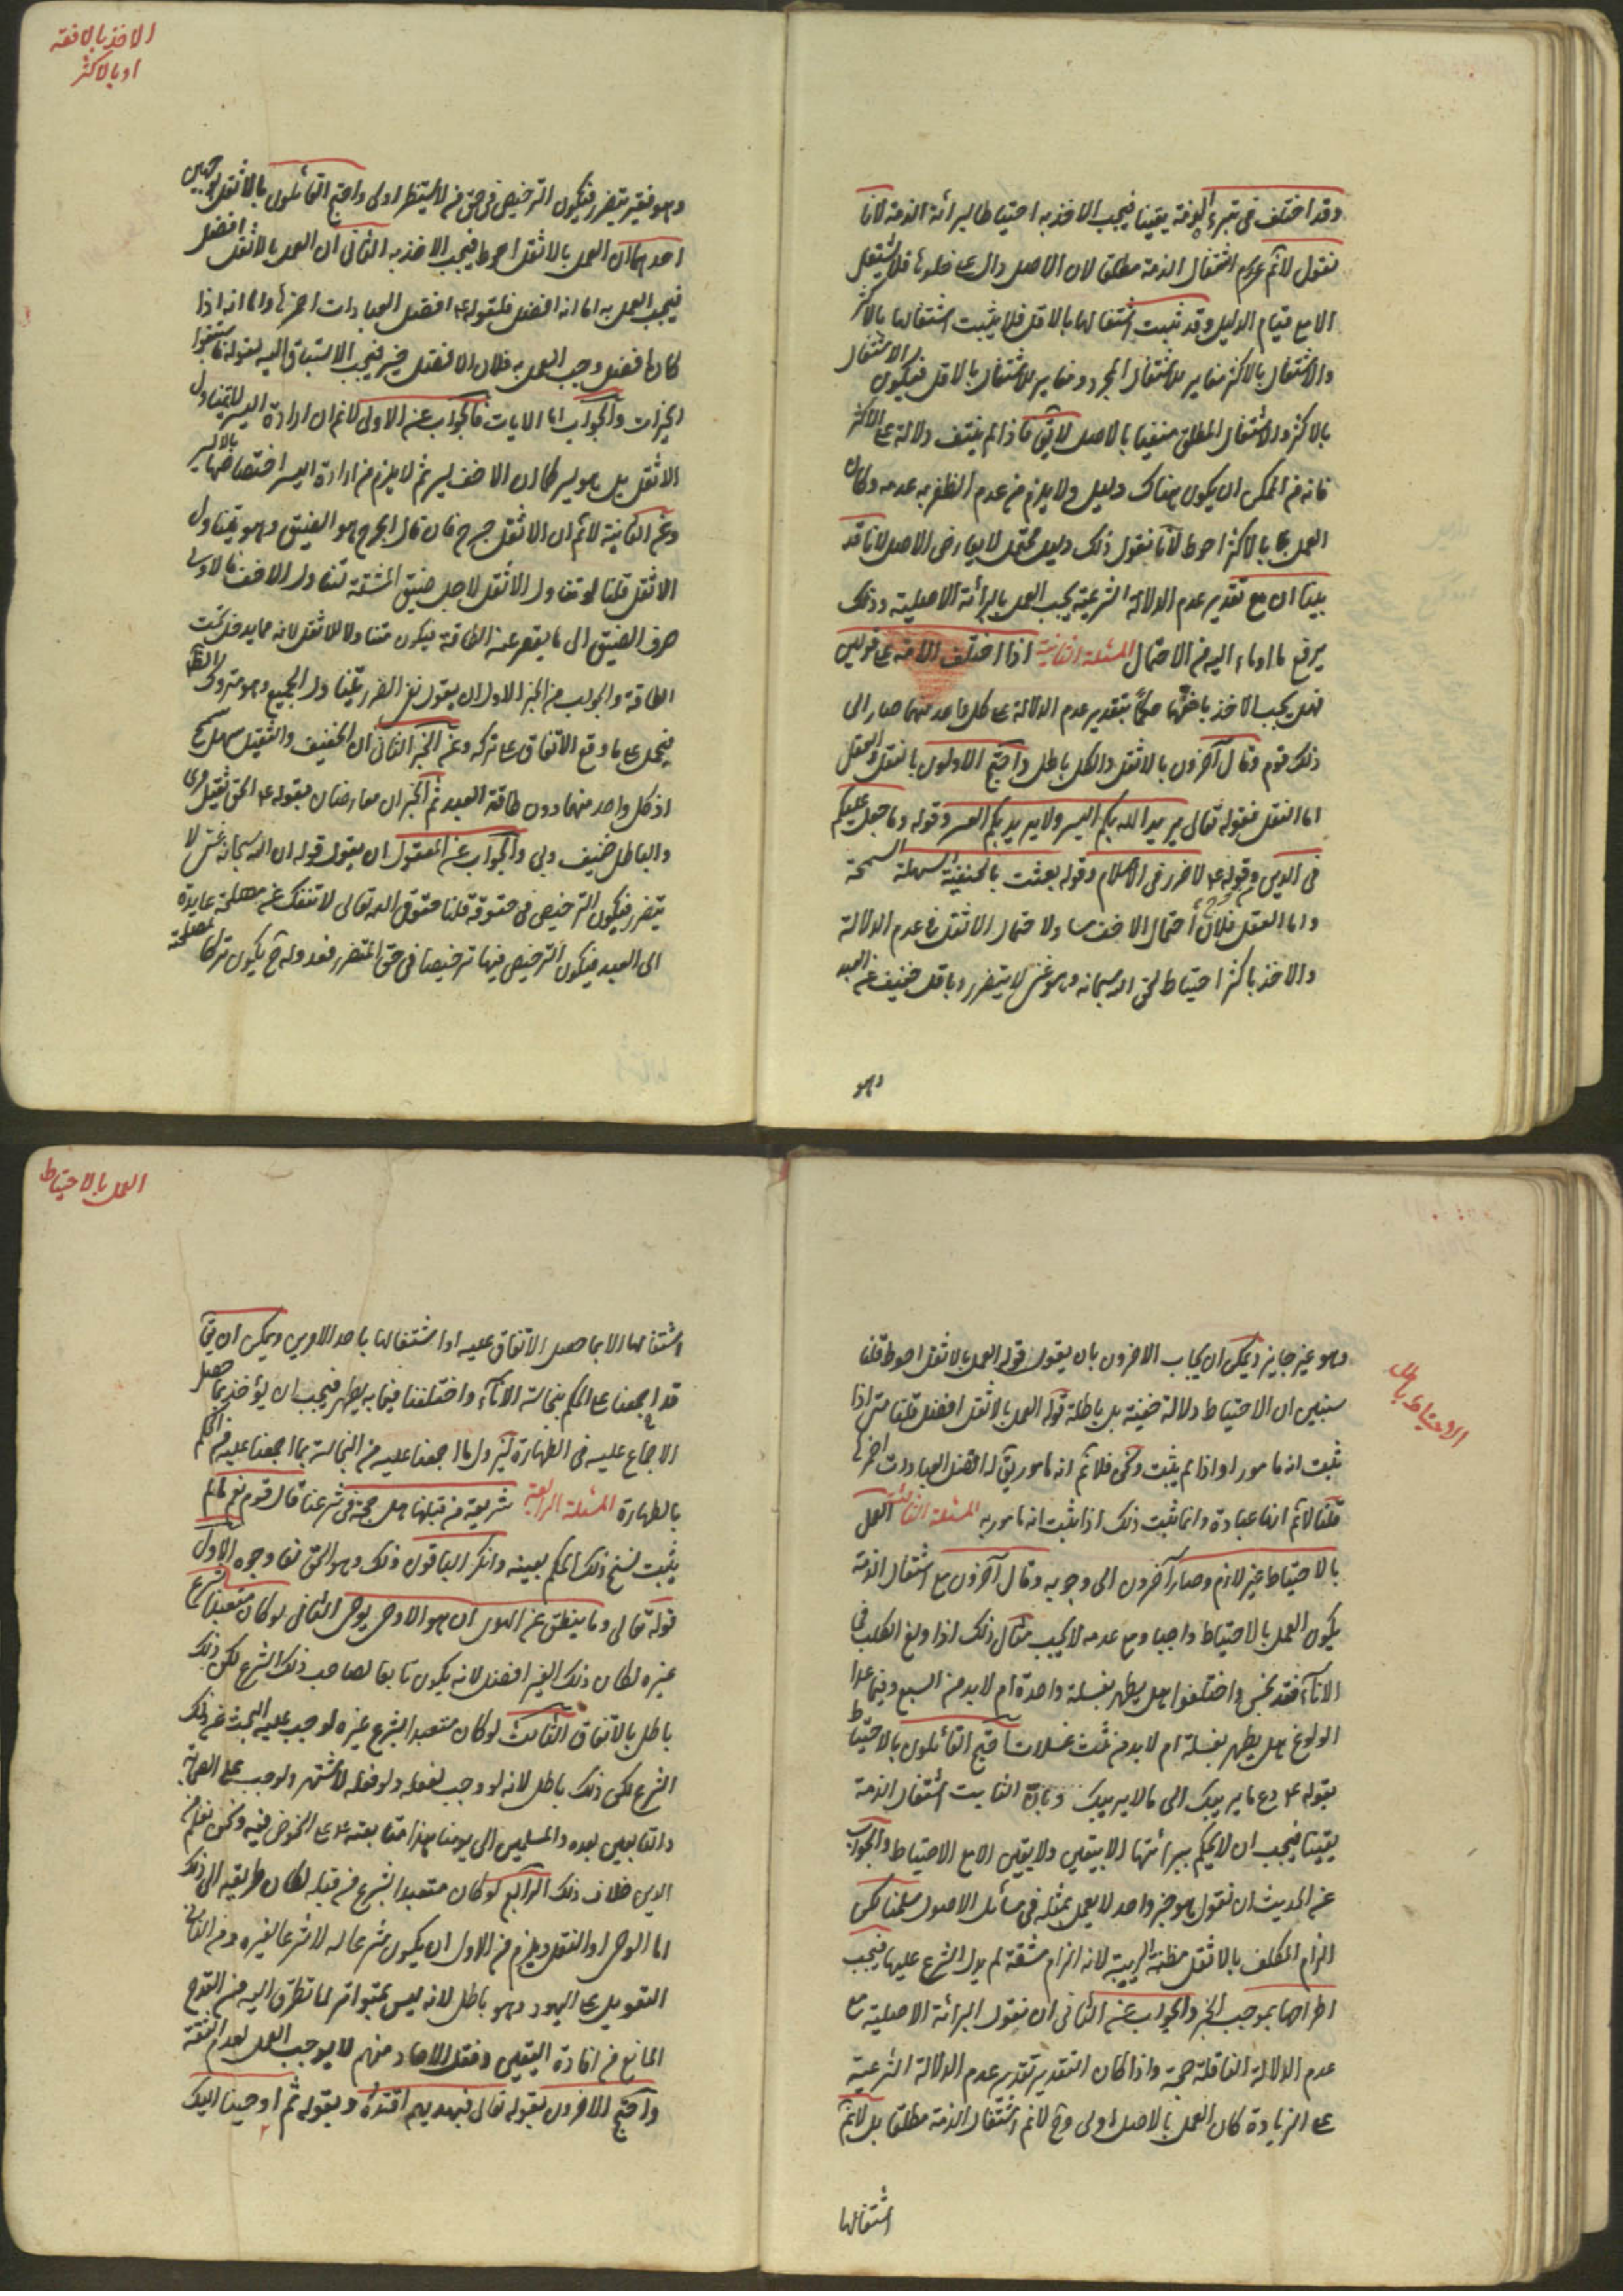 وقد اختلف فى تبرء الذمة يقينا فيجب الاخذ به احتياطا لبرائة الذمة لانا
نقول لانم عدم اشتغال الذمة مطلقا لان الاصل دال ع خلوها فلا يشتغل
الا مع قيام الدليل وقد ثبت اشتغالها بالاقل فلا يثبت اشتغالها بالاكثر
والاشتغال بالاكثر مغاير للاشتغال المجرد ومغاير للاشتغال بالاقل فيكون الاشتغال
بالاكثر والاشتغال المطلق منفيا بالاصل لايق فاذا لم ينتف دلالة ع الاكثر
فانه من الممكن ان يكون هناك دليل ولا يلزم من عدم الظفر به عدمه وكان
العمل بالاكثر احوط لانا نقول ذلك دليل محتمل لا يعارض الاصل لانا قد
بينا ان مع تقدير عدم الدلالة الشرعية يجب العمل بالبرائة الاصلية وذلك
يرفع ما اوماء اليه من الاحتمال المسئلة الثانية اذا اختلف الامة ع قولين
فهل يجب الاخذ باخفهما حكما بتقدير عدم الدلالة ع كل واحد منهما صار الى
ذلك قوم وقال آخرون بالاثقل والكل باطل واحتج الاولون بالنقل والعقل
اما النقل فقوله تعالى يريد الله بكم اليسر ولا يريد بكم العسر وقوله وما جعل عليكم
فى الدين وقوله ع لا ضرر فى الاسلام وقوله بعثت بالحنفية السهلة السمحة
واما العقل فلان احتمال الاخف ولاحتمال الاثقل فى عدم الدلالة
والاخذ باكثر احتياط لحق الله سبحانه وهو غنى لا يتضرر وباقل خفيف عن العبد
وهو
الاخذ بالاخف
او بالاكثر
وهو فقير يتضرر فيكون الترخيص فى حق من لا يستظهر اولى واحتج القائلون بالاثقل بوجهين
احدهما ان العمل بالاثقل احوط فيجب الاخذ به الثانى ان العمل بالاثقل افضل
فيجب العمل به اما انه افضل فلقوله ع افضل العبادات احمزها واما انه اذا
كان افضل وجب العمل به فلان الافضل خير فيجب الاستباق اليه لقوله فاستبقوا
الخيرات والجواب اما الايات فالجواب عن الاولى لانم ان ارادة اليسر لا يتناول
الاثقل بل هو يسر كما ان الاخف يسر ثم لا يلزم من ارادة اليسر اختصاصها بالايسر
وعن الثانية لانم ان الاثقل حرج فان قال الحرج هو الضيق وهو يتناول
الاثقل قلنا لو تناول الاثقل لاجل ضيق المشقة لتناول الاخف فالاولى
صرف الضيق الى ما يقصر عنه الطاقة فيكون متناولا للاثقل لانه مما يدخل تحت
الطاقة والجواب من الخبر الاول ان يقول نفى الضرر يتناول الجميع وهو متروك الظاهر
فيحمل ع ما وقع الاتفاق ع تركه وعن الخبر الثانى ان الخفيف والثقيل سهل سمح
اذ كل واحد منهما دون طاقة العبد ثم الخبران معارضان بقوله ع الحق ثقيل مرى
والباطل خفيف وبى والجواب عن المعقول ان يقول قوله ان الله سبحانه غنى لا
يتضرر فيكون الترخيص فى حقوقه قلنا حقوق الله تعالى لا تنفك عن مصلحة عايدة
الى العبد فيكون الترخيص فيها ترخيصا فى حق المتضرر فقد وله ح يكون تركا لمصلحته
وهو غير جايز ويمكن ان يجاب الاخرون بان يقول قوله العمل بالاثقل احوط قلنا
سنبين ان الاحتياط دلالة ضعيفة بل باطلة قوله العمل بالاثقل افضل قلنا متى اذا
ثبت انه مامور او اذا لم يثبت ونحن فلانم انه مامور يق له افضل العبادات احمزها
قلنا لانم انها عبادة وانما ثبت ذلك اذا ثبت انه مامور به المسئلة الثالثة العمل
بالاحتياط غير لازم وصار آخرون الى وجوبه وقال آخرون مع اشتغال الذمة
يكون العمل بالاحتياط واجبا ومع عدمه لا يجب مثال ذلك اذا ولغ الكلب فى
الاناء فقد نجس واختلفوا هل يطهر بغسلة واحدة ام لا بد من السبع وفيما عدا
الولوغ هل يطهر بغسلة ام لا بد من ثلث غسلات احتج القائلون بالاحتياط
بقوله ع دع ما يريبك الى ما لا يريبك وبان الثابت اشتغال الذمة
يقينا فيجب ان لا يحكم ببرائتها الا بيقين ولا يقين الا مع الاحتياط والجواب
عن الحديث ان نقول هو خبر واحد لا يعمل بمثله فى مسائل الاصول سلمنا لكن
الزام المكلف بالاثقل مظنة الريبة لانه الزام مشقة لم يدل الشرع عليها فيجب
اطراحها بموجب الخبر والجواب عن الثانى ان نقول البرائة الاصلية مع
عدم الدلالة الناقلة حجة واذا كان التقدير تقدير عدم الدلالة الشرعية
ع الزيادة كان العمل بالاصل اولى وح لانم اشتغال الذمة مطلقا بل لانم
اشتغالها
الاحتياط باطل
العمل بالاحتياط
اشتغالها الا بما حصل الاتفاق عليه او اشتغالها باحد الامرين ويمكن ان يق
قد اجمعنا ع الحكم بنجاسة الاناء واختلفنا فيما به يطهر فيجب ان يؤخذ بما حصل
الاجماع عليه فى الطهارة ليزول ما اجمعنا عليه من النجاسة بما اجمعنا عليه من الحكم
بالطهارة المسئلة الرابعة شريعة من قبلنا هل حجة فى شرعنا قال قوم نعم ما لم
يثبت نسخ ذلك الحكم بعينه وانكر الباقون ذلك وهو الحق لنا وجوه الاول
قوله تعالى وما ينطق عن الهوى ان هو الا وحى يوحى الثانى لو كان متعبدا بشرع
غيره لكان ذلك الغير افضل لانه يكون تابعا لصاحب ذلك الشرع لكن ذلك
باطل بالاتفاق الثالث لو كان متعبدا بشرع غيره لوجب عليه البحث عن ذلك
الشرع لكن ذلك باطل لانه لو وجب لفعله ولو فعله لاشتهر ولوجب على الصحابة
والتابعين بعده والمسلمين الى يومنا هذا متابعته ع ع الخوض فيه ونحن نعلم من
الدين خلاف ذلك الرابع لو كان متعبدا بشرع من قبله لكان طريقه الى ذلك
اما الوحى او النقل ويلزم من الاول ان يكون شرعا له لا شرعا لغيره ومن الثانى
التعويل ع اليهود وهو باطل لانه ليس بمتواتر لما تطرق اليه من القدح
المانع من افادة اليقين ونقل الاحاد منهم لا يوجب العمل لعدم الثقة
واحتج الاخرون بقوله تعالى فبهديهم اقتده وبقوله ثم اوحينا اليك